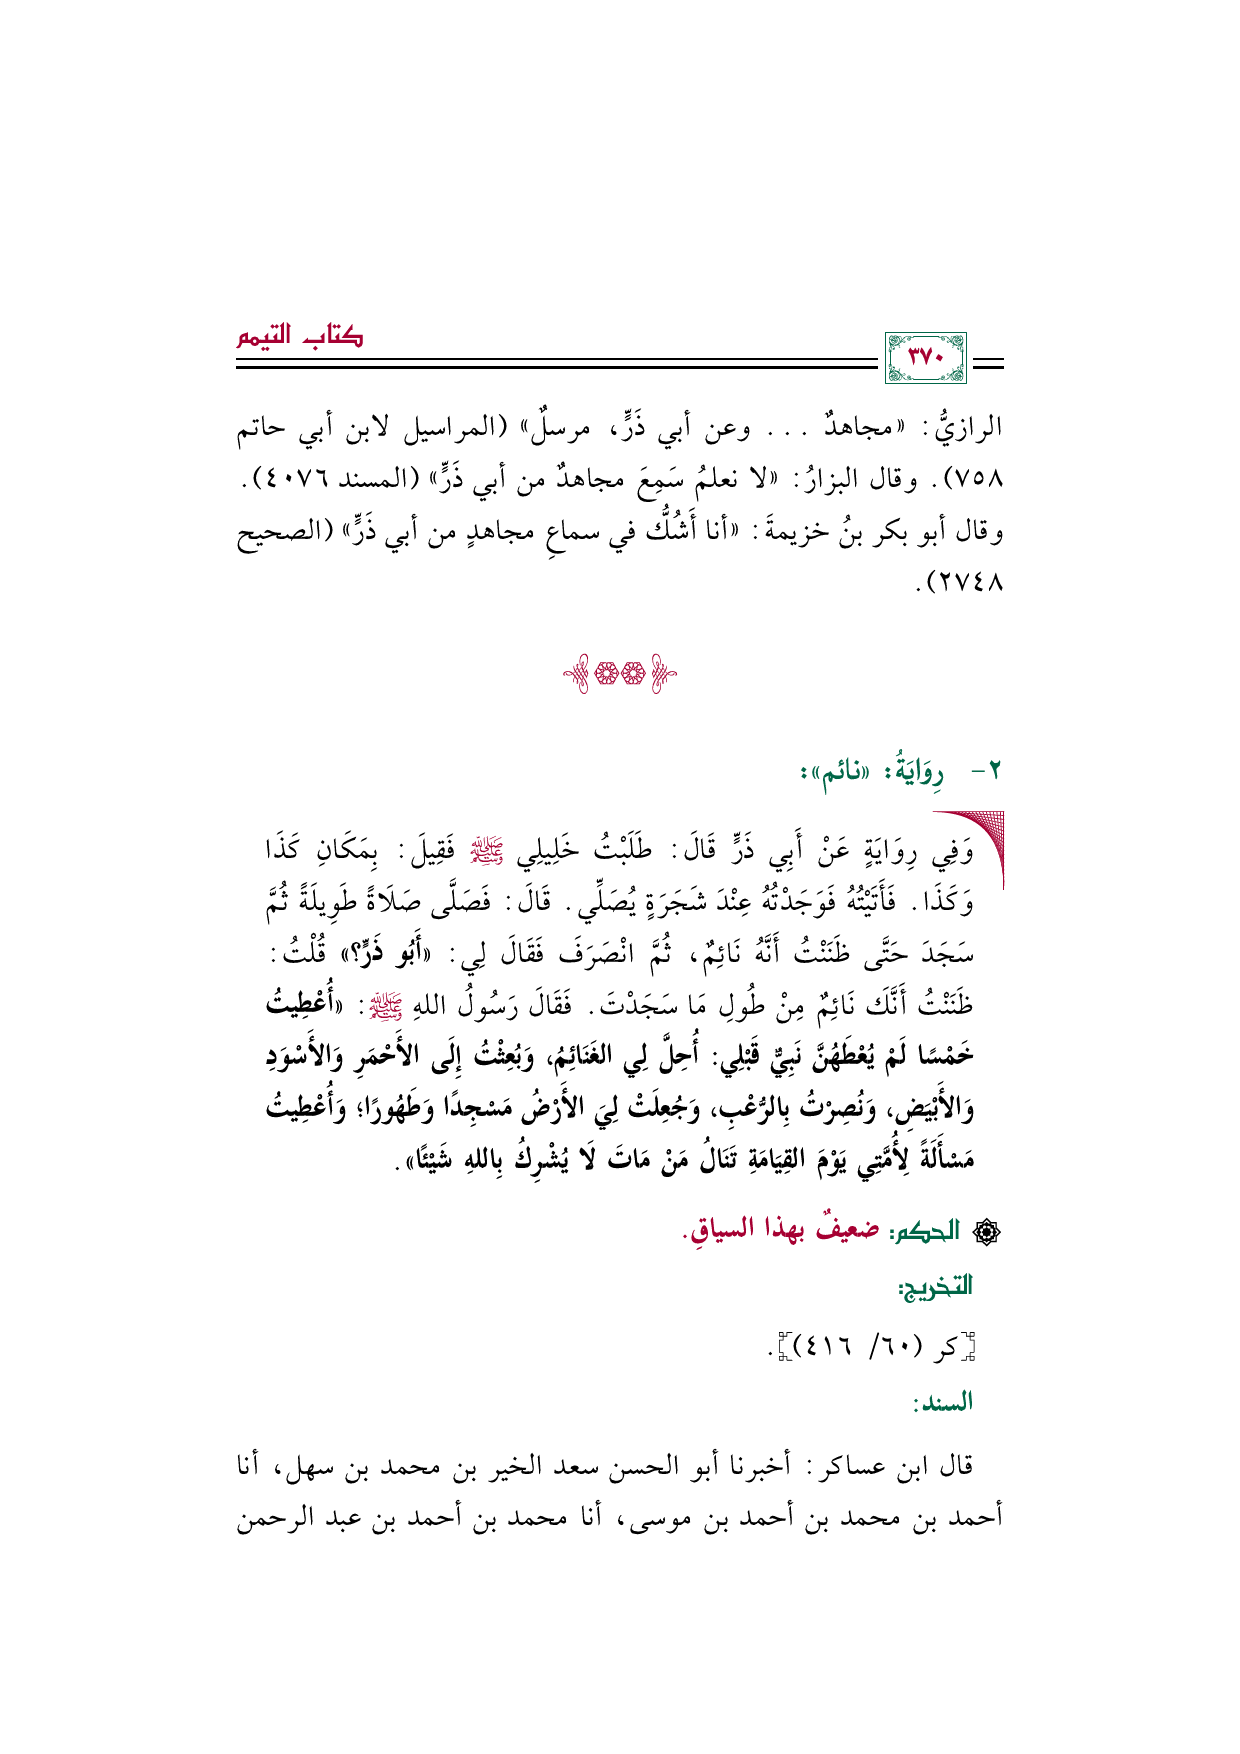 كتاب التيمم
٣٧٠
الرازيُّ: «مجاهدٌ ... وعن أبي ذَرٍّ، مرسلٌ» (المراسيل لابن أبي حاتم
٧٥٨). وقال البزارُ: «لا نعلمُ سَمِعَ مجاهدٌ من أبي ذَرٍّ» (المسند ٤٠٧٦).
وقال أبو بكر بنُ خزيمةَ: «أنا أَشُكُّ في سماعِ مجاهدٍ من أبي ذَرٍّ» (الصحيح
٢٧٤٨).
٢- رِوَايَةُ: «نائم»:
وَفِي رِوَايَةٍ عَنْ أَبِي ذَرٍّ قَالَ: طَلَبْتُ خَلِيلِي ﷺ فَقِيلَ: بِمَكَانِ كَذَا
وَكَذَا. فَأَتَيْتُهُ فَوَجَدْتُهُ عِنْدَ شَجَرَةٍ يُصَلِّي. قَالَ: فَصَلَّى صَلَاةً طَوِيلَةً ثُمَّ
سَجَدَ حَتَّى ظَنَنْتُ أَنَّهُ نَائِمٌ، ثُمَّ انْصَرَفَ فَقَالَ لِي: «أَبُو ذَرٍّ؟» قُلْتُ:
ظَنَنْتُ أَنَّكَ نَائِمٌ مِنْ طُولِ مَا سَجَدْتَ. فَقَالَ رَسُولُ اللهِ ﷺ: «أُعْطِيتُ
خَمْسًا لَمْ يُعْطَهُنَّ نَبِيٌّ قَبْلِي: أُحِلَّ لِي الغَنَائِمُ، وَبُعِثْتُ إِلَى الأَحْمَرِ وَالأَسْوَدِ
وَالأَبْيَضِ، وَنُصِرْتُ بِالرُّعْبِ، وَجُعِلَتْ لِيَ الأَرْضُ مَسْجِدًا وَطَهُورًا؛ وَأُعْطِيتُ
مَسْأَلَةً لِأُمَّتِي يَوْمَ القِيَامَةِ تَنَالُ مَنْ مَاتَ لَا يُشْرِكُ بِاللهِ شَيْئًا».
الحكم: ضعيفٌ بهذا السياقِ.
التخريج:
[كر (٦٠/ ٤١٦)].
السند:
قال ابن عساكر: أخبرنا أبو الحسن سعد الخير بن محمد بن سهل، أنا
أحمد بن محمد بن أحمد بن موسى، أنا محمد بن أحمد بن عبد الرحمن